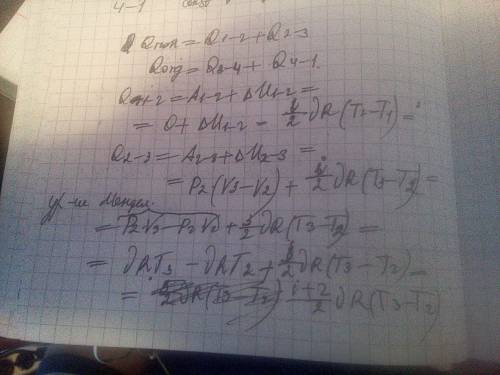 4-1 const
Qпол = Q1-2 + Q2-3
Qотд = Q3-4 + Q4-1.
Q1-2 = A1-2 + ΔU1-2 =
= 0 + ΔU1-2 = i/2 νR(T2-T1) =
Q2-3 = A2-3 + ΔU2-3 =
= P2(V3-V2) + i/2 νR(T3-T2) =
ур-ие Мендел.
= P2V3 - P2V2 + i/2 νR(T3-T2) =
= νRT3 - νRT2 + i/2 νR(T3-T2) =
= i+2/2 νR(T3-T2)